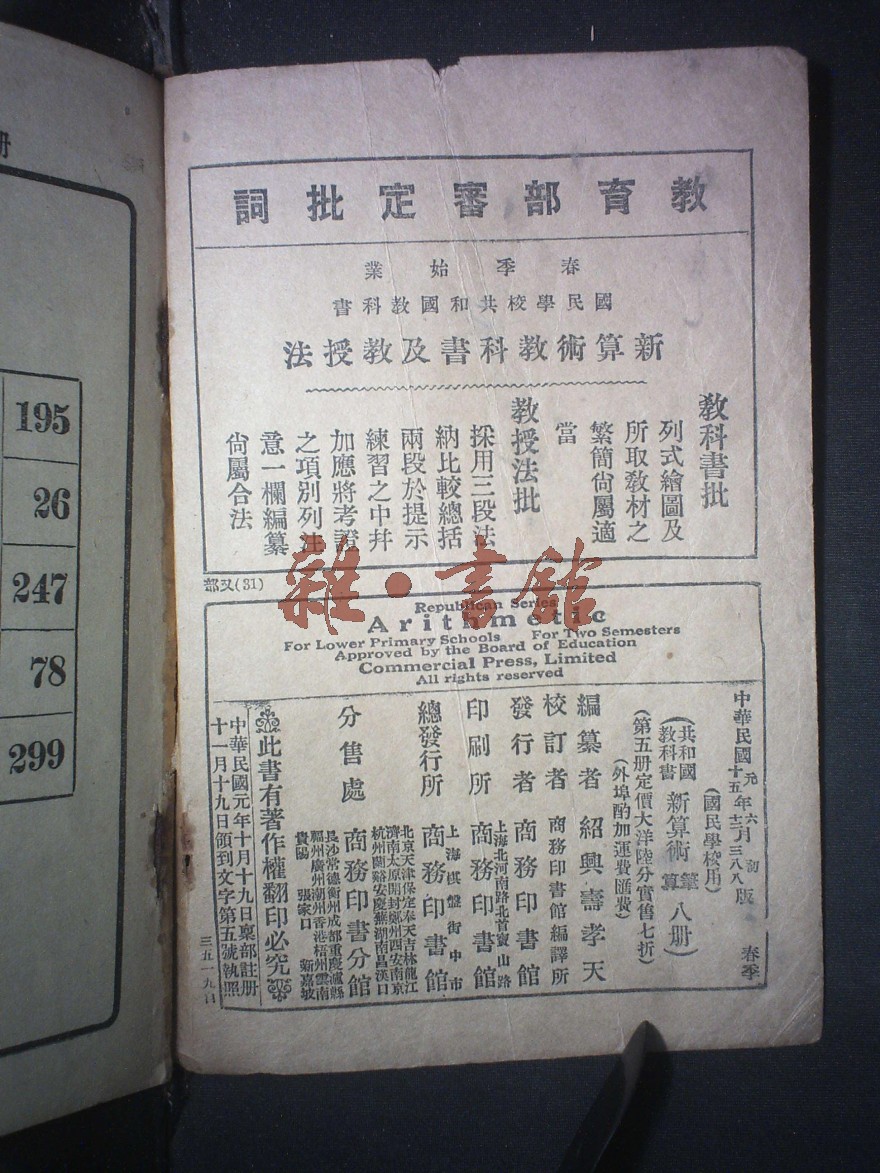 册
195
26
247
78
299
教育部審定批詞
春季始業
國民學校共和國教科書
新算術教科書及教授法
教科書批
列式繪圖及
所取教材之
繁簡尙屬適
當
教授法批
採用三段法
納比較總括
兩段於提示
練習之中幷
加應將考證
之項別列注
意一欄編纂
尙屬合法
(31)又部
雜·書館
Republican Series
Arithmetic
For Lower Primary Schools For Two Semesters
Approved by the Board of Education
Commercial Press, Limited
All rights reserved
中華民國元年六月初版 春季
十五年十二月三八八版
(國民學校用)
(共和國教科書 新算術 筆算 八册)
(第五册定價大洋陸分實售七折)
(外埠酌加運費匯費)
編纂者 紹興壽孝天
校訂者 商務印書館編譯所
發行者 商務印書館
上海北河南路北首寶山路
印刷所 商務印書館
上海棋盤街中市
總發行所 商務印書館
北京天津保定奉天吉林龍江
濟南太原開封鄭州西安南京
杭州蘭谿安慶蕪湖南昌漢口
分售處 商務印書分館
長沙常德衡州成都重慶瀘縣
福州廣州潮州香港梧州雲南
貴陽 張家口 新嘉坡
此書有著作權翻印必究
中華民國元年十月十九日稟部註册
十一月十九日領到文字第五號執照
三五一九日